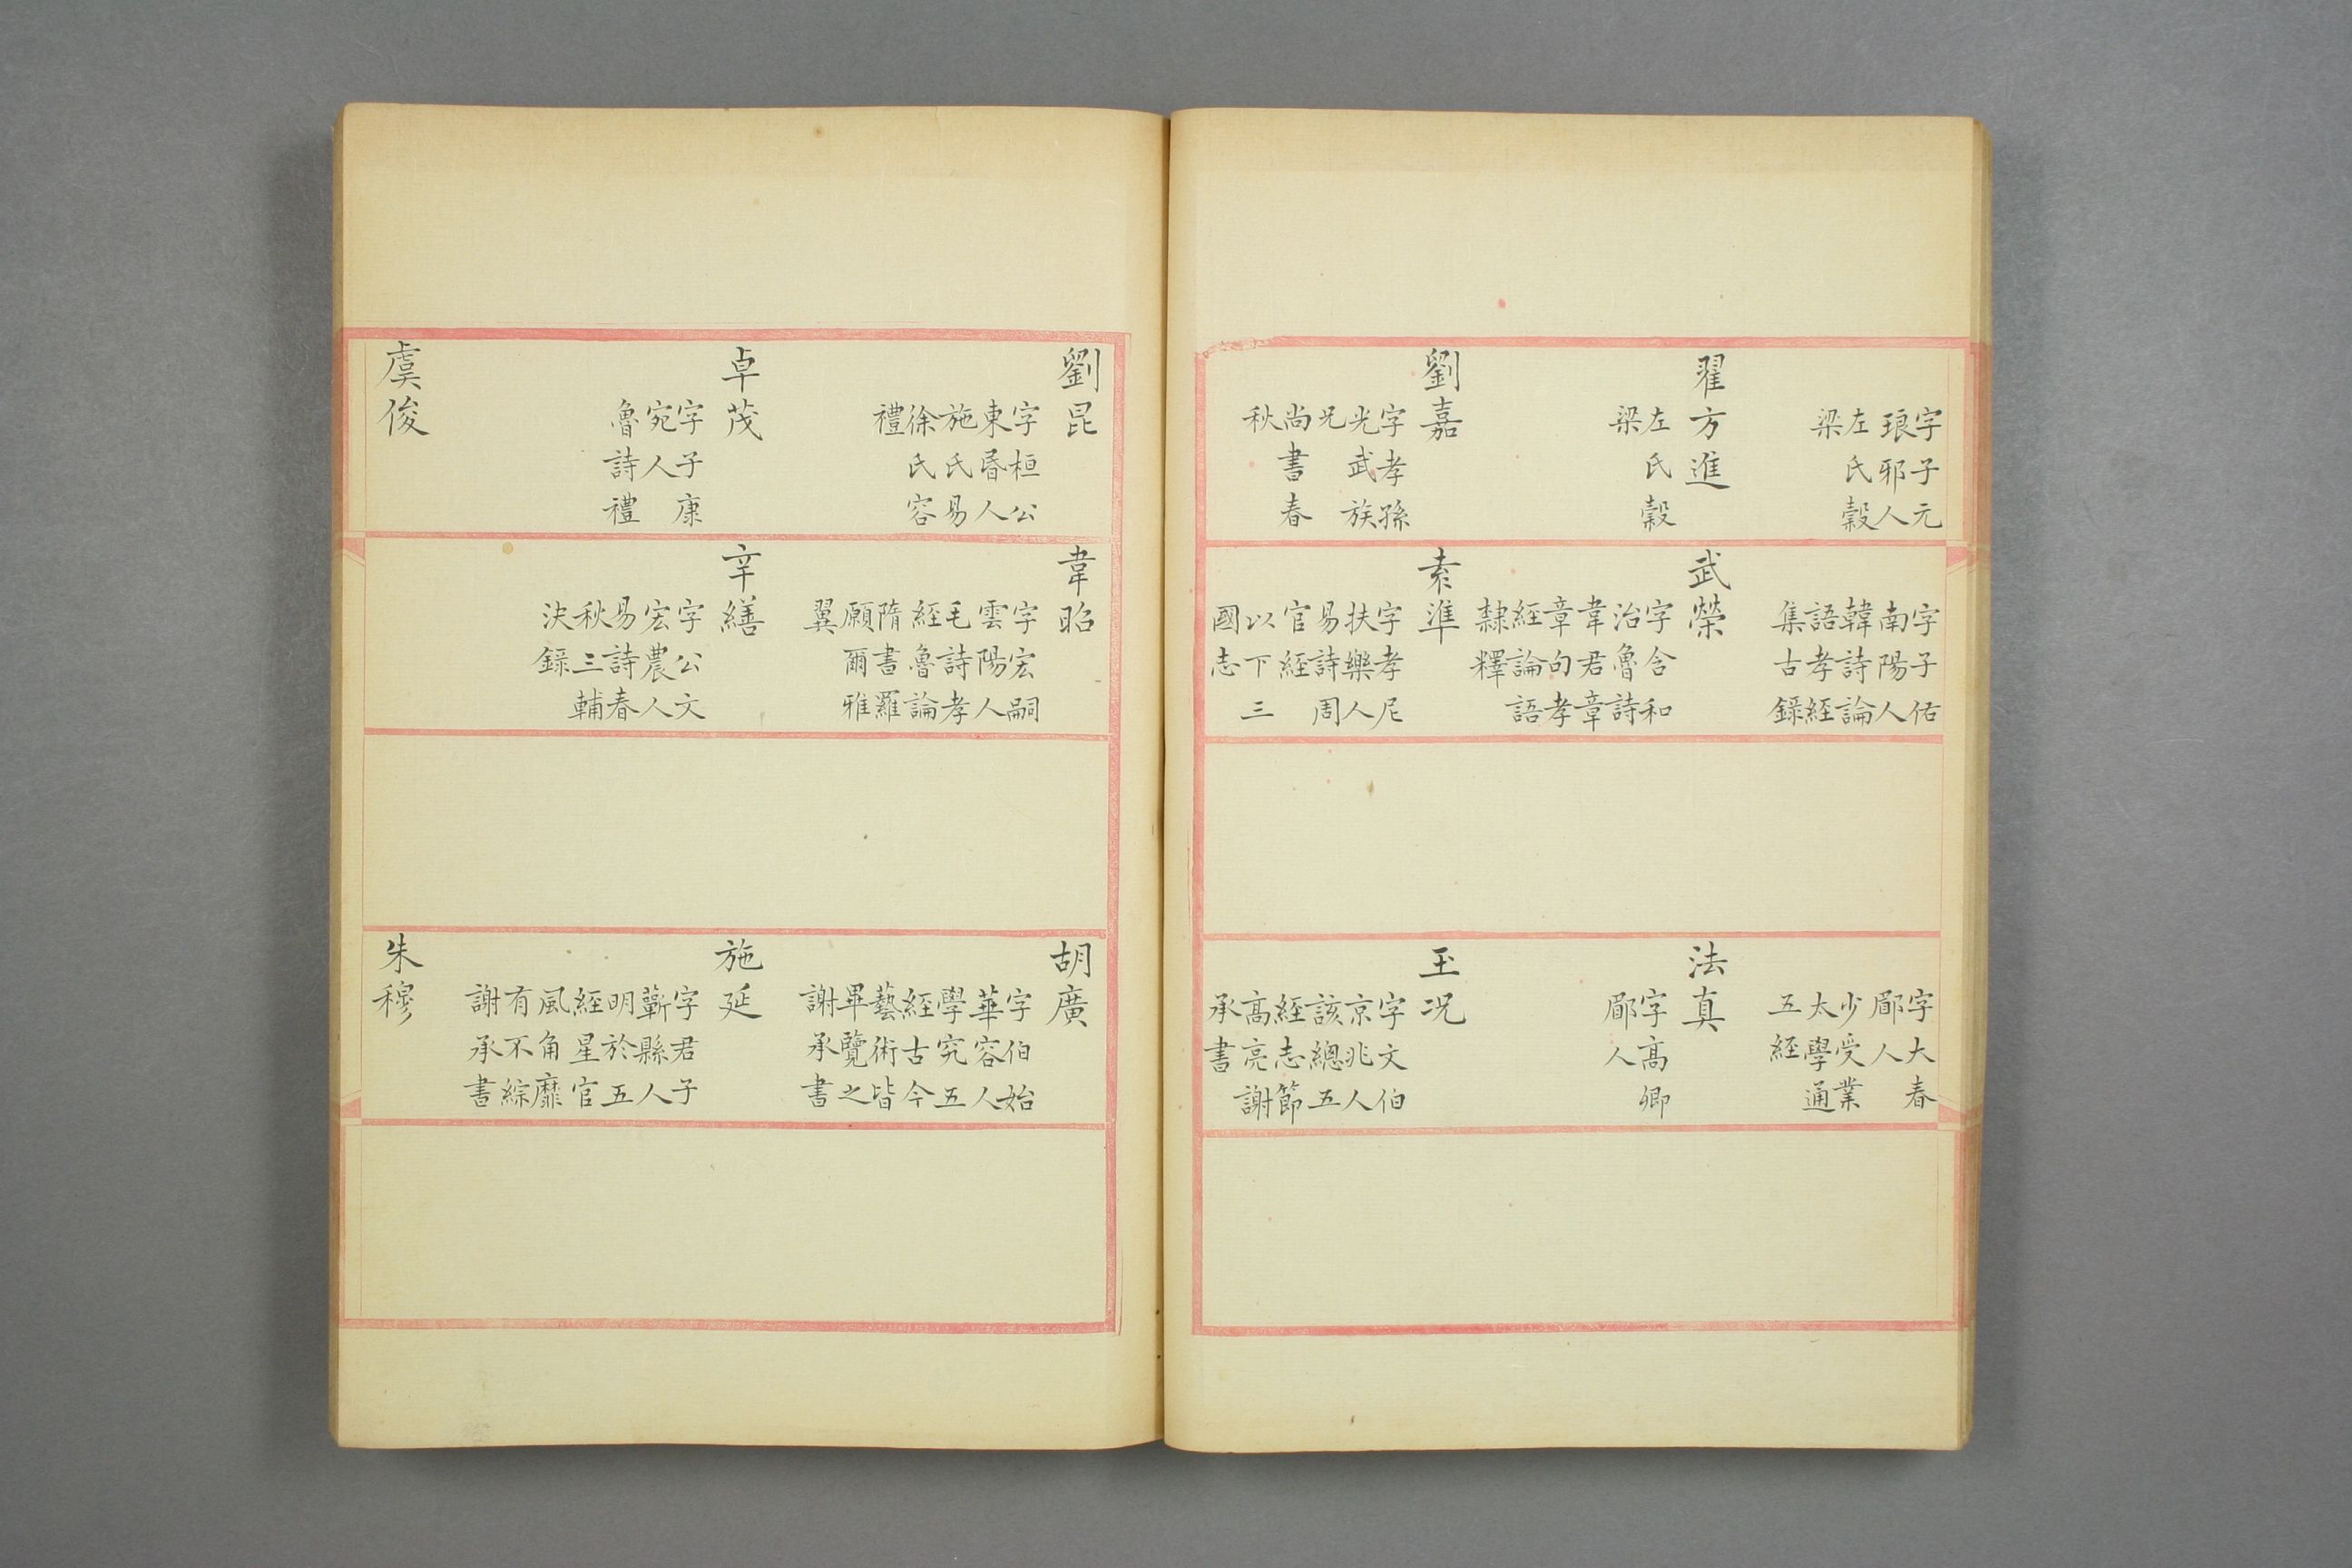 字子元
琅邪人
左氏穀
梁
翟方進
左氏穀
梁
劉嘉
字孝孫
光武族
兄
尚書春
秋
字子佑
南陽人
韓詩論
語孝經
集古錄
武榮
字含和
治魯詩
韋君章
章句孝
經論語
隸釋
袁準
字孝尼
扶樂人
易詩周
官經
以下三
國志
字大春
郿人
少受業
太學通
五經
法真
字高卿
郿人
玉况
字文伯
京兆人
該總五
經志節
高亮謝
承書
劉昆
字桓公
東昬人
施氏易
徐氏容
禮
卓茂
字子康
宛人
魯詩禮
虞俊
韋昭
字宏嗣
雲陽人
毛詩孝
經魯論
隋書羅
願爾雅
翼
辛繕
字公文
宏農人
易詩春
秋三輔
決錄
胡廣
字伯始
華容人
學究五
經古今
藝術皆
畢覽之
謝承書
施延
字君子
蘄縣人
明於五
經星官
風角靡
有不綜
謝承書
朱穆